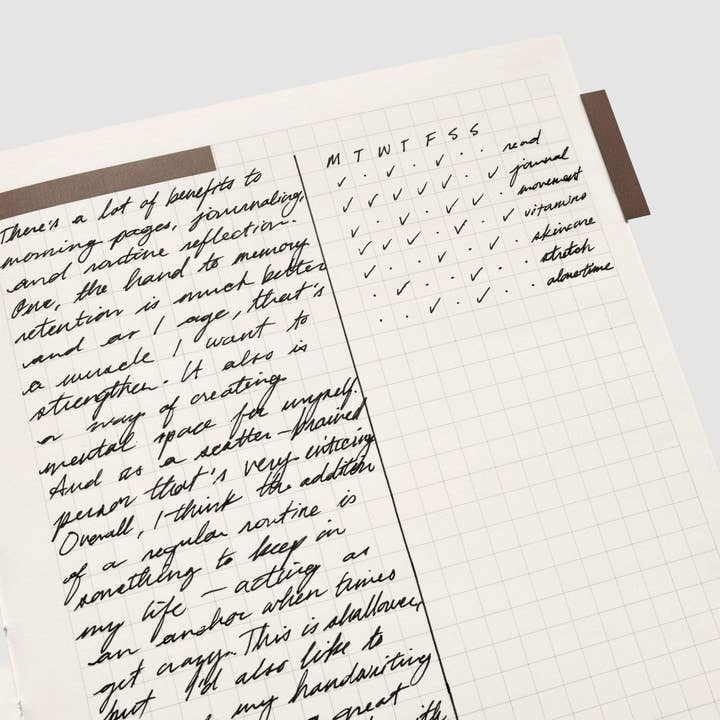 There's a lot of benefits to
morning pages, journaling,
and routine reflection.
One, the hand to memory
retention is much better
and as I age, that's
a muscle I want to
strengthen. It also is
a way of creating
mental space for myself.
And as a scatter-brained
person that's very enticing
Overall, I think the addition
of a regular routine is
something to keep in
my life — acting as
an anchor when times
get crazy. This is shallower,
but I'd also like to
my handwriting
a great
with
M T W T F S S
read
journal
movement
vitamins
skincare
stretch
alone time